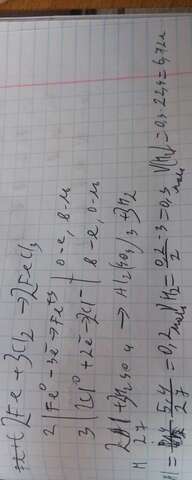 2Fe + 3Cl2 → 2FeCl3
2 | Fe⁰ - 3e → Fe+3 | о-е, в-ль
3 | Cl⁰ + 2e → 2Cl- | в-е, о-ль
2Al + 3H2SO4 → Al2(SO4)3 + 3H2
M 27
= 5,4 / 27 = 0,2 моль V H2 = 0,2 / 2 · 3 = 0,3 моль V(H2) = 0,3 · 22,4 = 6,72 л